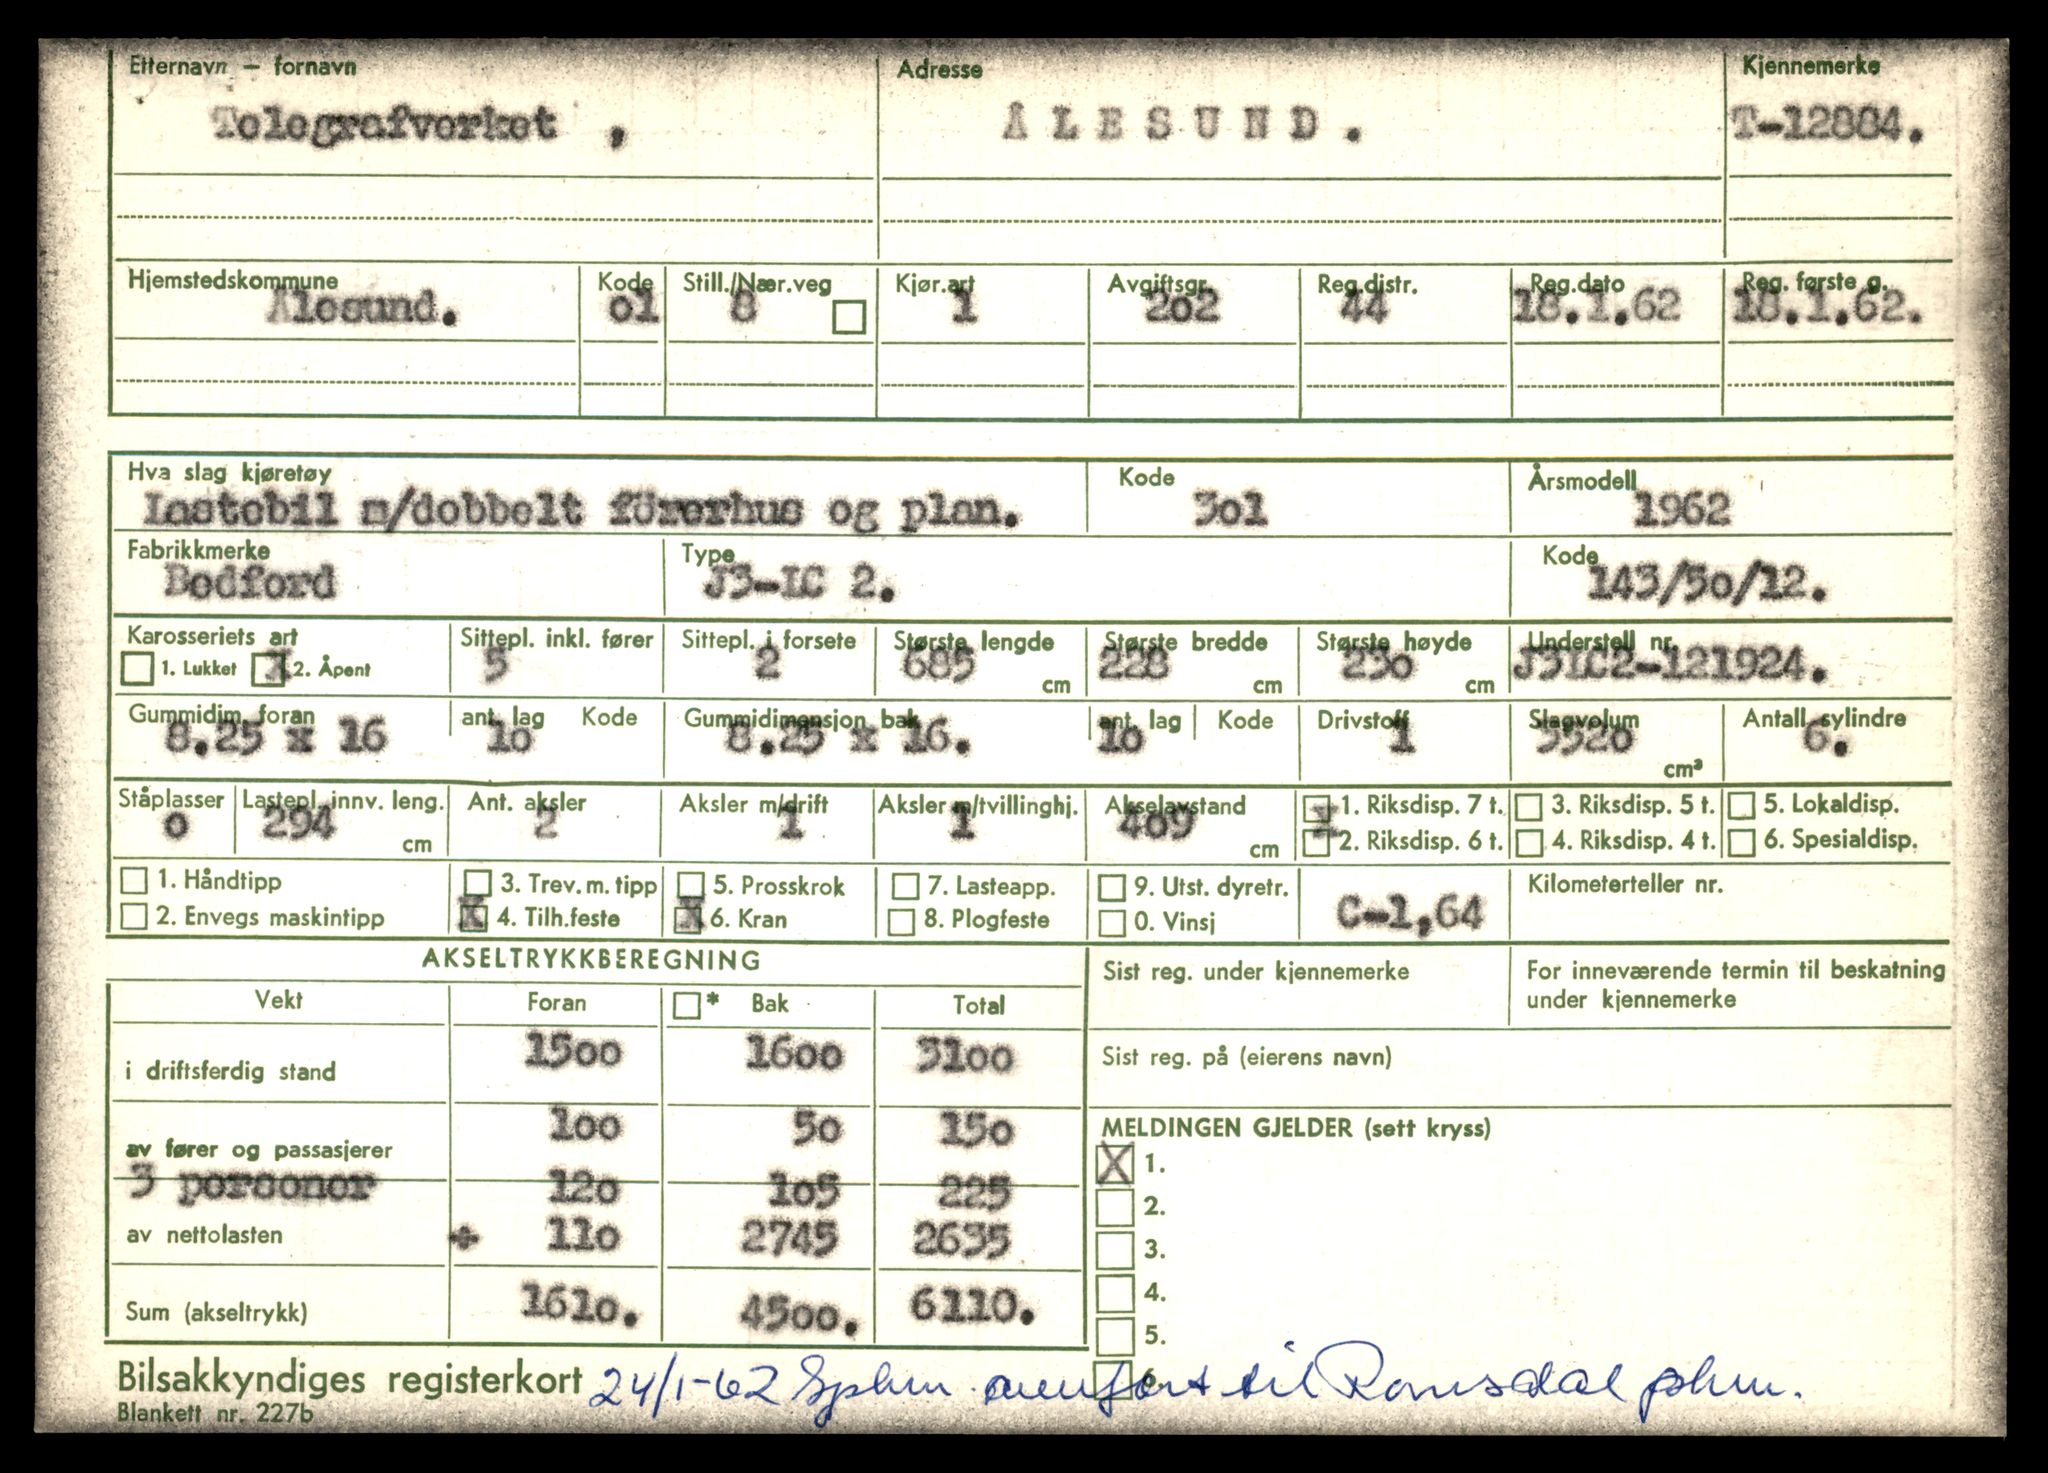 Etternavn – fornavn Adresse Kjennemerke
Telegrafverket , ÅLESUND. T-12884.
Hjemstedskommune Kode Still./Nær.veg Kjør.art Avgiftsgr. Reg.distr. Reg.dato Reg. første g.
Ålesund. o1 8 1 2o2 44 18.1.62 18.1.62.
Hva slag kjøretøy Kode Årsmodell
Lastebil m/dobbelt förerhus og plan. 3o1 1962
Fabrikkmerke Type Kode
Bedford J3-LC 2. 143/5o/12.
Karosseriets art Sittepl. inkl. fører Sittepl. i forsete Største lengde Største bredde Største høyde Understell nr.
1. Lukket X 2. Åpent 5 2 685 cm 228 cm 23o cm J3LC2-121924.
Gummidim. foran ant. lag Kode Gummidimensjon bak ant. lag Kode Drivstoff Slagvolum Antall sylindre
8.25 x 16 1o 8.25 x 16. 1o 1 352o cm³ 6.
Ståplasser Lastepl. innv. leng. Ant. aksler Aksler m/drift Aksler m/tvillinghj. Akselavstand X 1. Riksdisp. 7 t. 3. Riksdisp. 5 t. 5. Lokaldisp.
o 294 cm 2 1 1 4o9 cm 2. Riksdisp. 6 t. 4. Riksdisp. 4 t. 6. Spesialdisp.
1. Håndtipp 3. Trev. m. tipp 5. Prosskrok 7. Lasteapp. 9. Utst. dyretr. C-1,64 Kilometerteller nr.
2. Envegs maskintipp X 4. Tilh.feste X 6. Kran 8. Plogfeste 0. Vinsj
AKSELTRYKKBEREGNING Sist reg. under kjennemerke For inneværende termin til beskatning
under kjennemerke
Vekt Foran * Bak Total
i driftsferdig stand 15oo 16oo 31oo
Sist reg. på (eierens navn)
av fører og passasjerer 1oo 5o 15o
MELDINGEN GJELDER (sett kryss)
X 1.
3 personer 12o 1o5 225
2.
av nettolasten ÷ 11o 2745 2635
3.
4.
Sum (akseltrykk) 161o. 45oo. 611o.
5.
6.
Bilsakkyndiges registerkort 24/1-62 overført til Romsdal
Blankett nr. 227b